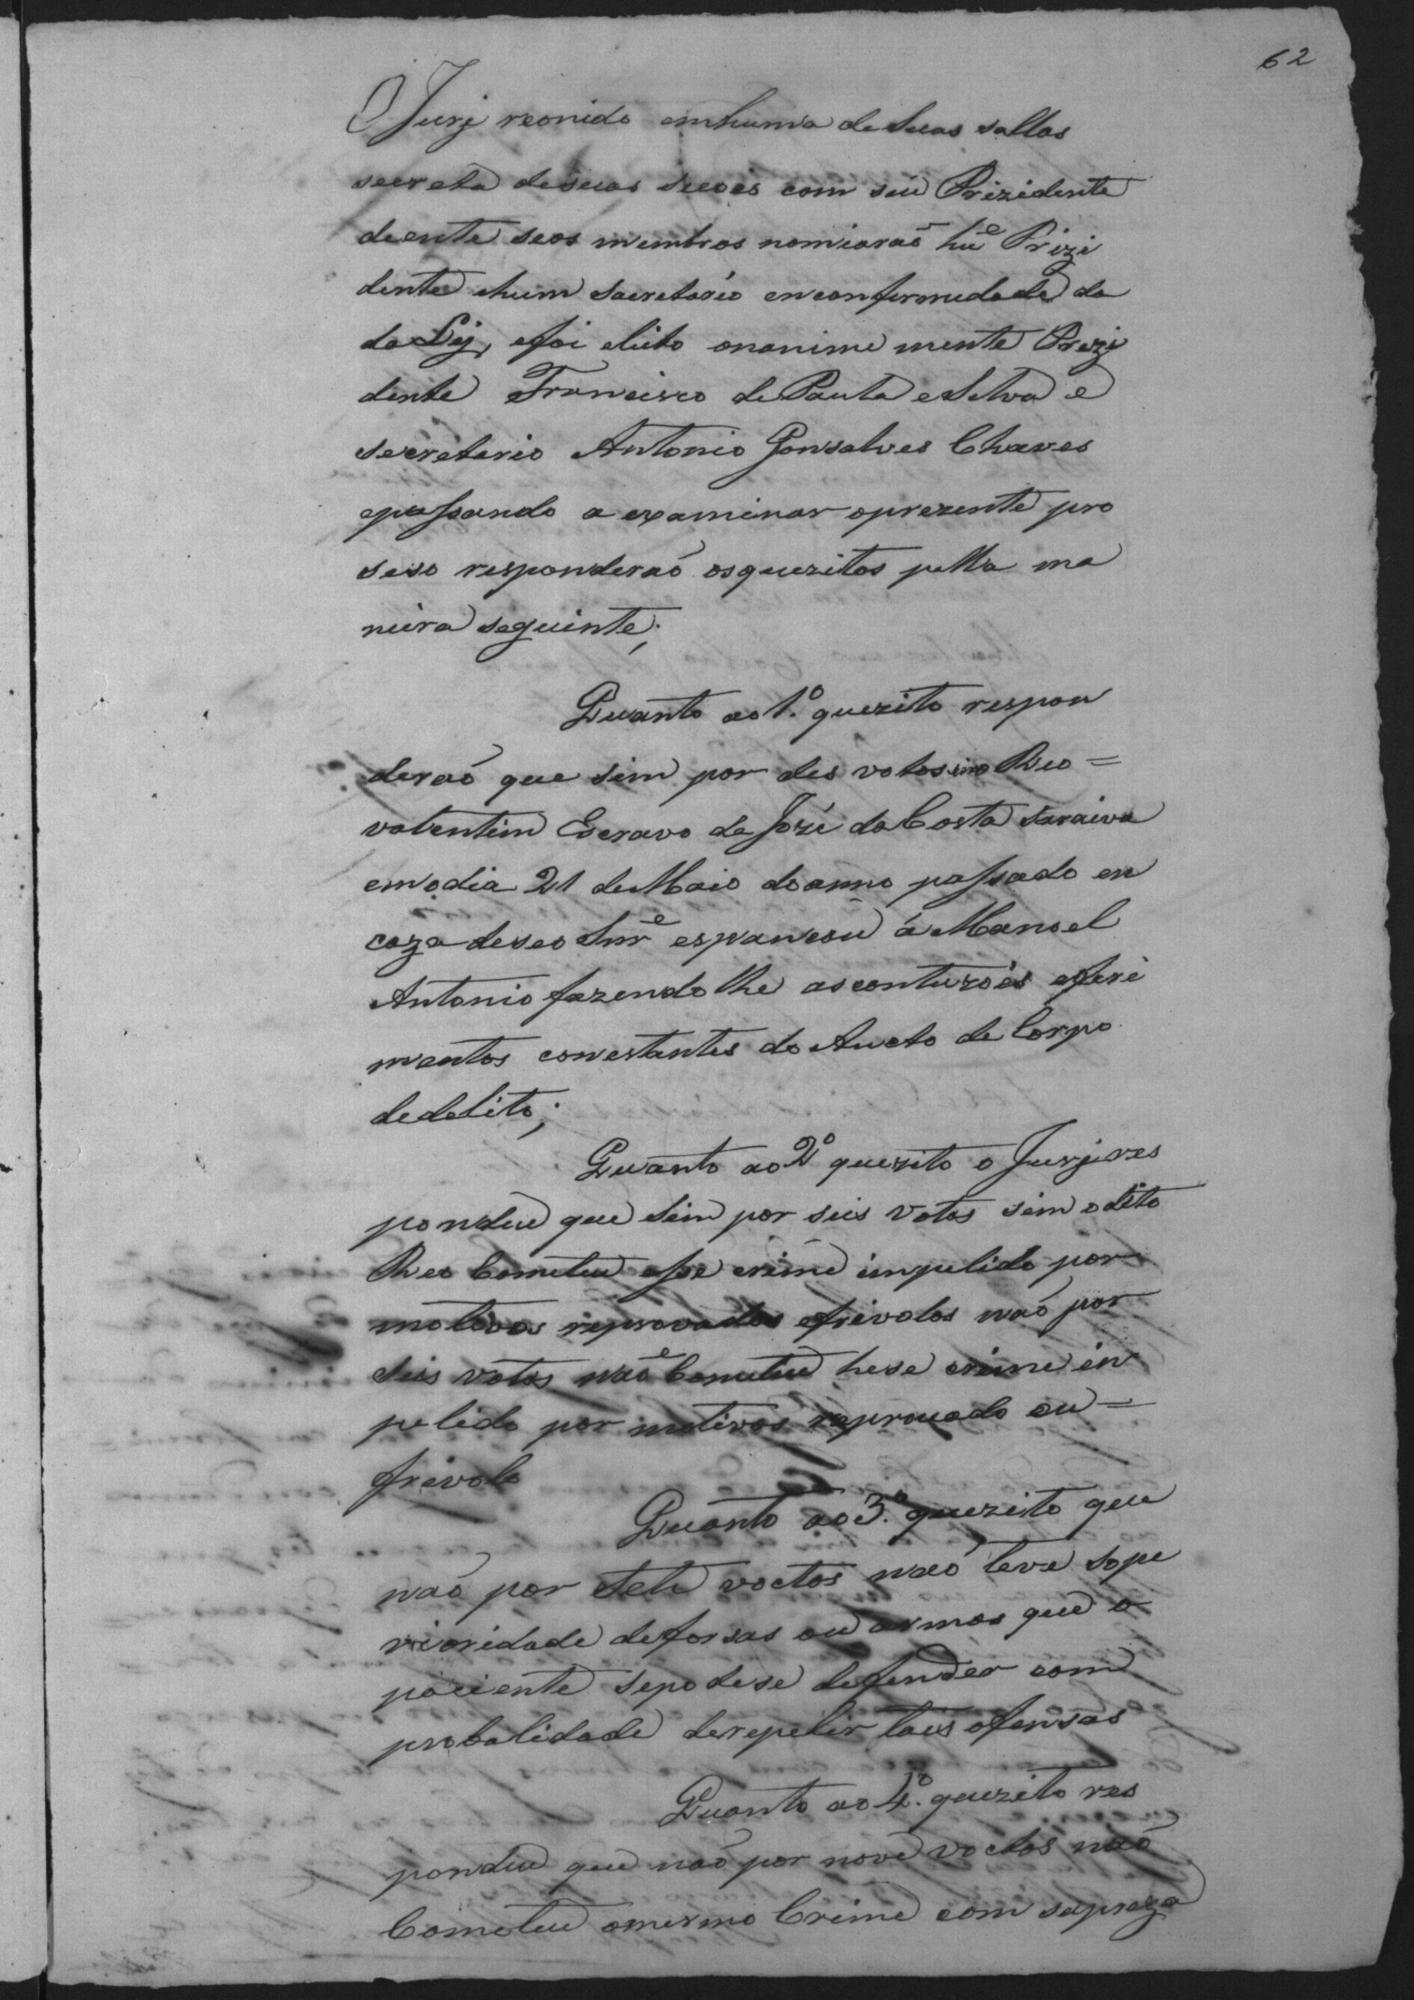 62
O Jurj reonido emhuma de Suas sallas
secreta desuas secois com seu Prezidente
dente seos membros nomiaraõ hũ Prizi
dente ehum sacretario enconformidade da
da Ley, efoi eleito ononime mente Prezi
dente Francisco de Paula e Silva e
secretario Antonio Gonsalves Chaves
epassando a examinar oprezente pro
seso responderaõ osquezitos pella ma
neira seguinte;
Quanto ao 1.º quezito respon
deraõ que sim por des votos sim o Reo =
valentim Escravo de José da Costa Saraiva
em odia 21 de Maio do anno passado en
caza deseo Snr.e espancou á Manoel
Antonio fazendo lhe as contuzoẽs eferi
mentos constantes do Aucto de Corpo
dedelito;
Quanto ao 2º quezito o Jurj res
pondeu que sim por seis votos sim o dito
Reo Cometeu esse crime impelido por
motivos reprovados efrivolos naõ por
seis votos naõ Cometeu hese crime in
pelido por motivos reprovado ou =
frivolo
Quanto ao 3.º quezito que
naõ por sete voctos naõ teve sope
rioridade deforsas ou armas que o
paciente sepodese defender com
probalidade derepelir tais ofensas
Quanto ao 4.º quezito res
pondeu que naõ por nove voctos naõ
Cometeu omesmo Crime com sopreza